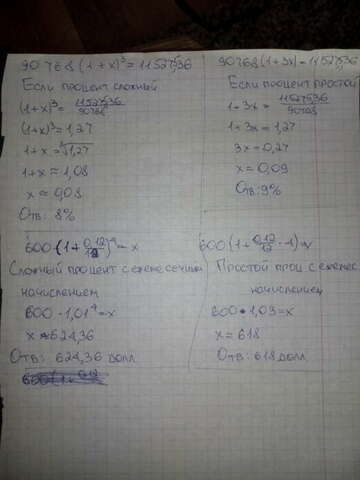 90768(1+x)³=115275,36
Если процент сложный
(1+x)³=115275,36/90768
(1+x)³=1,27
1+x=³√1,27
1+x≈1,08
x≈0,08
Отв: 8%
90768(1+3x)=115275,36
Если процент простой
1+3x=115275,36/90768
1+3x=1,27
3x=0,27
x=0,09
Отв: 9%
600·(1+0,12/12)⁴=x
Сложный процент с ежемесячным
начислением
600·1,01⁴=x
x≈624,36
Отв: 624,36 долл
600(1+0,12/12·4)=x
Простой проц с ежемес
начислением
600·1,03=x
x=618
Отв: 618 долл